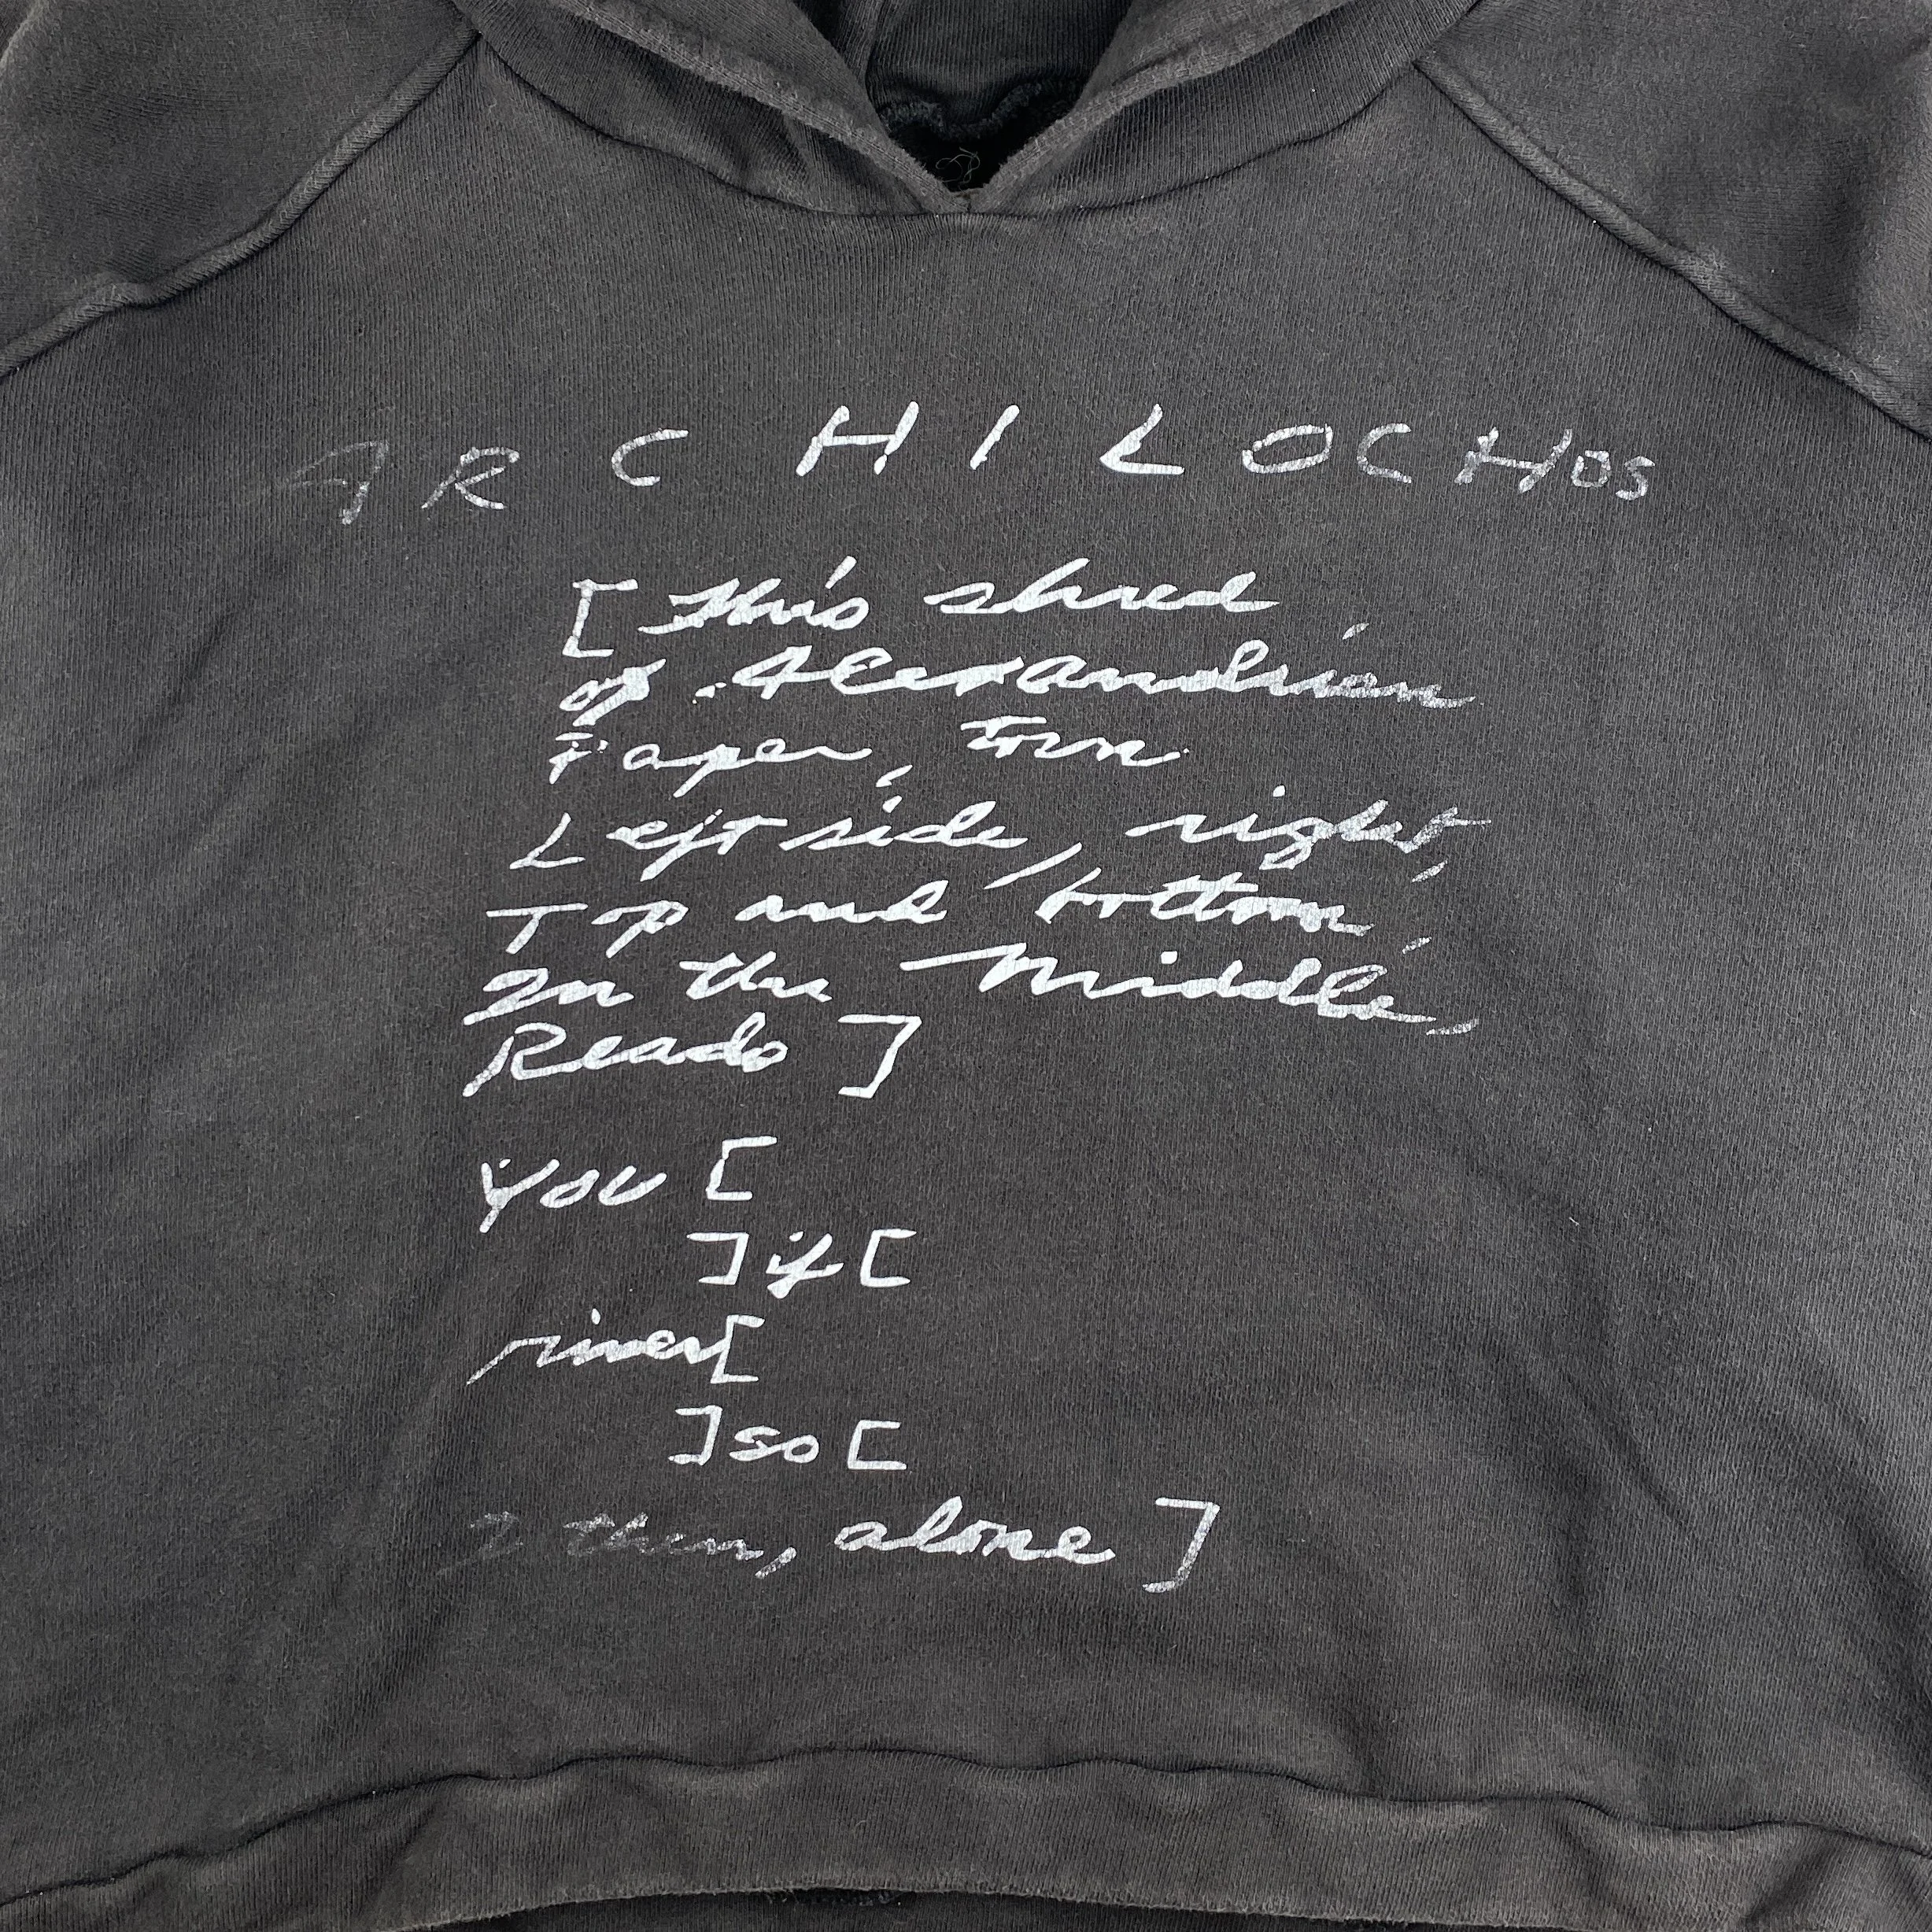 ARCHILOCHOS
[This shred
of Alexandrian
Paper, torn
Left side, right,
Top and bottom,
In the Middle,
Reads]
you [
] if [
river [
] so [
I then, alone ]